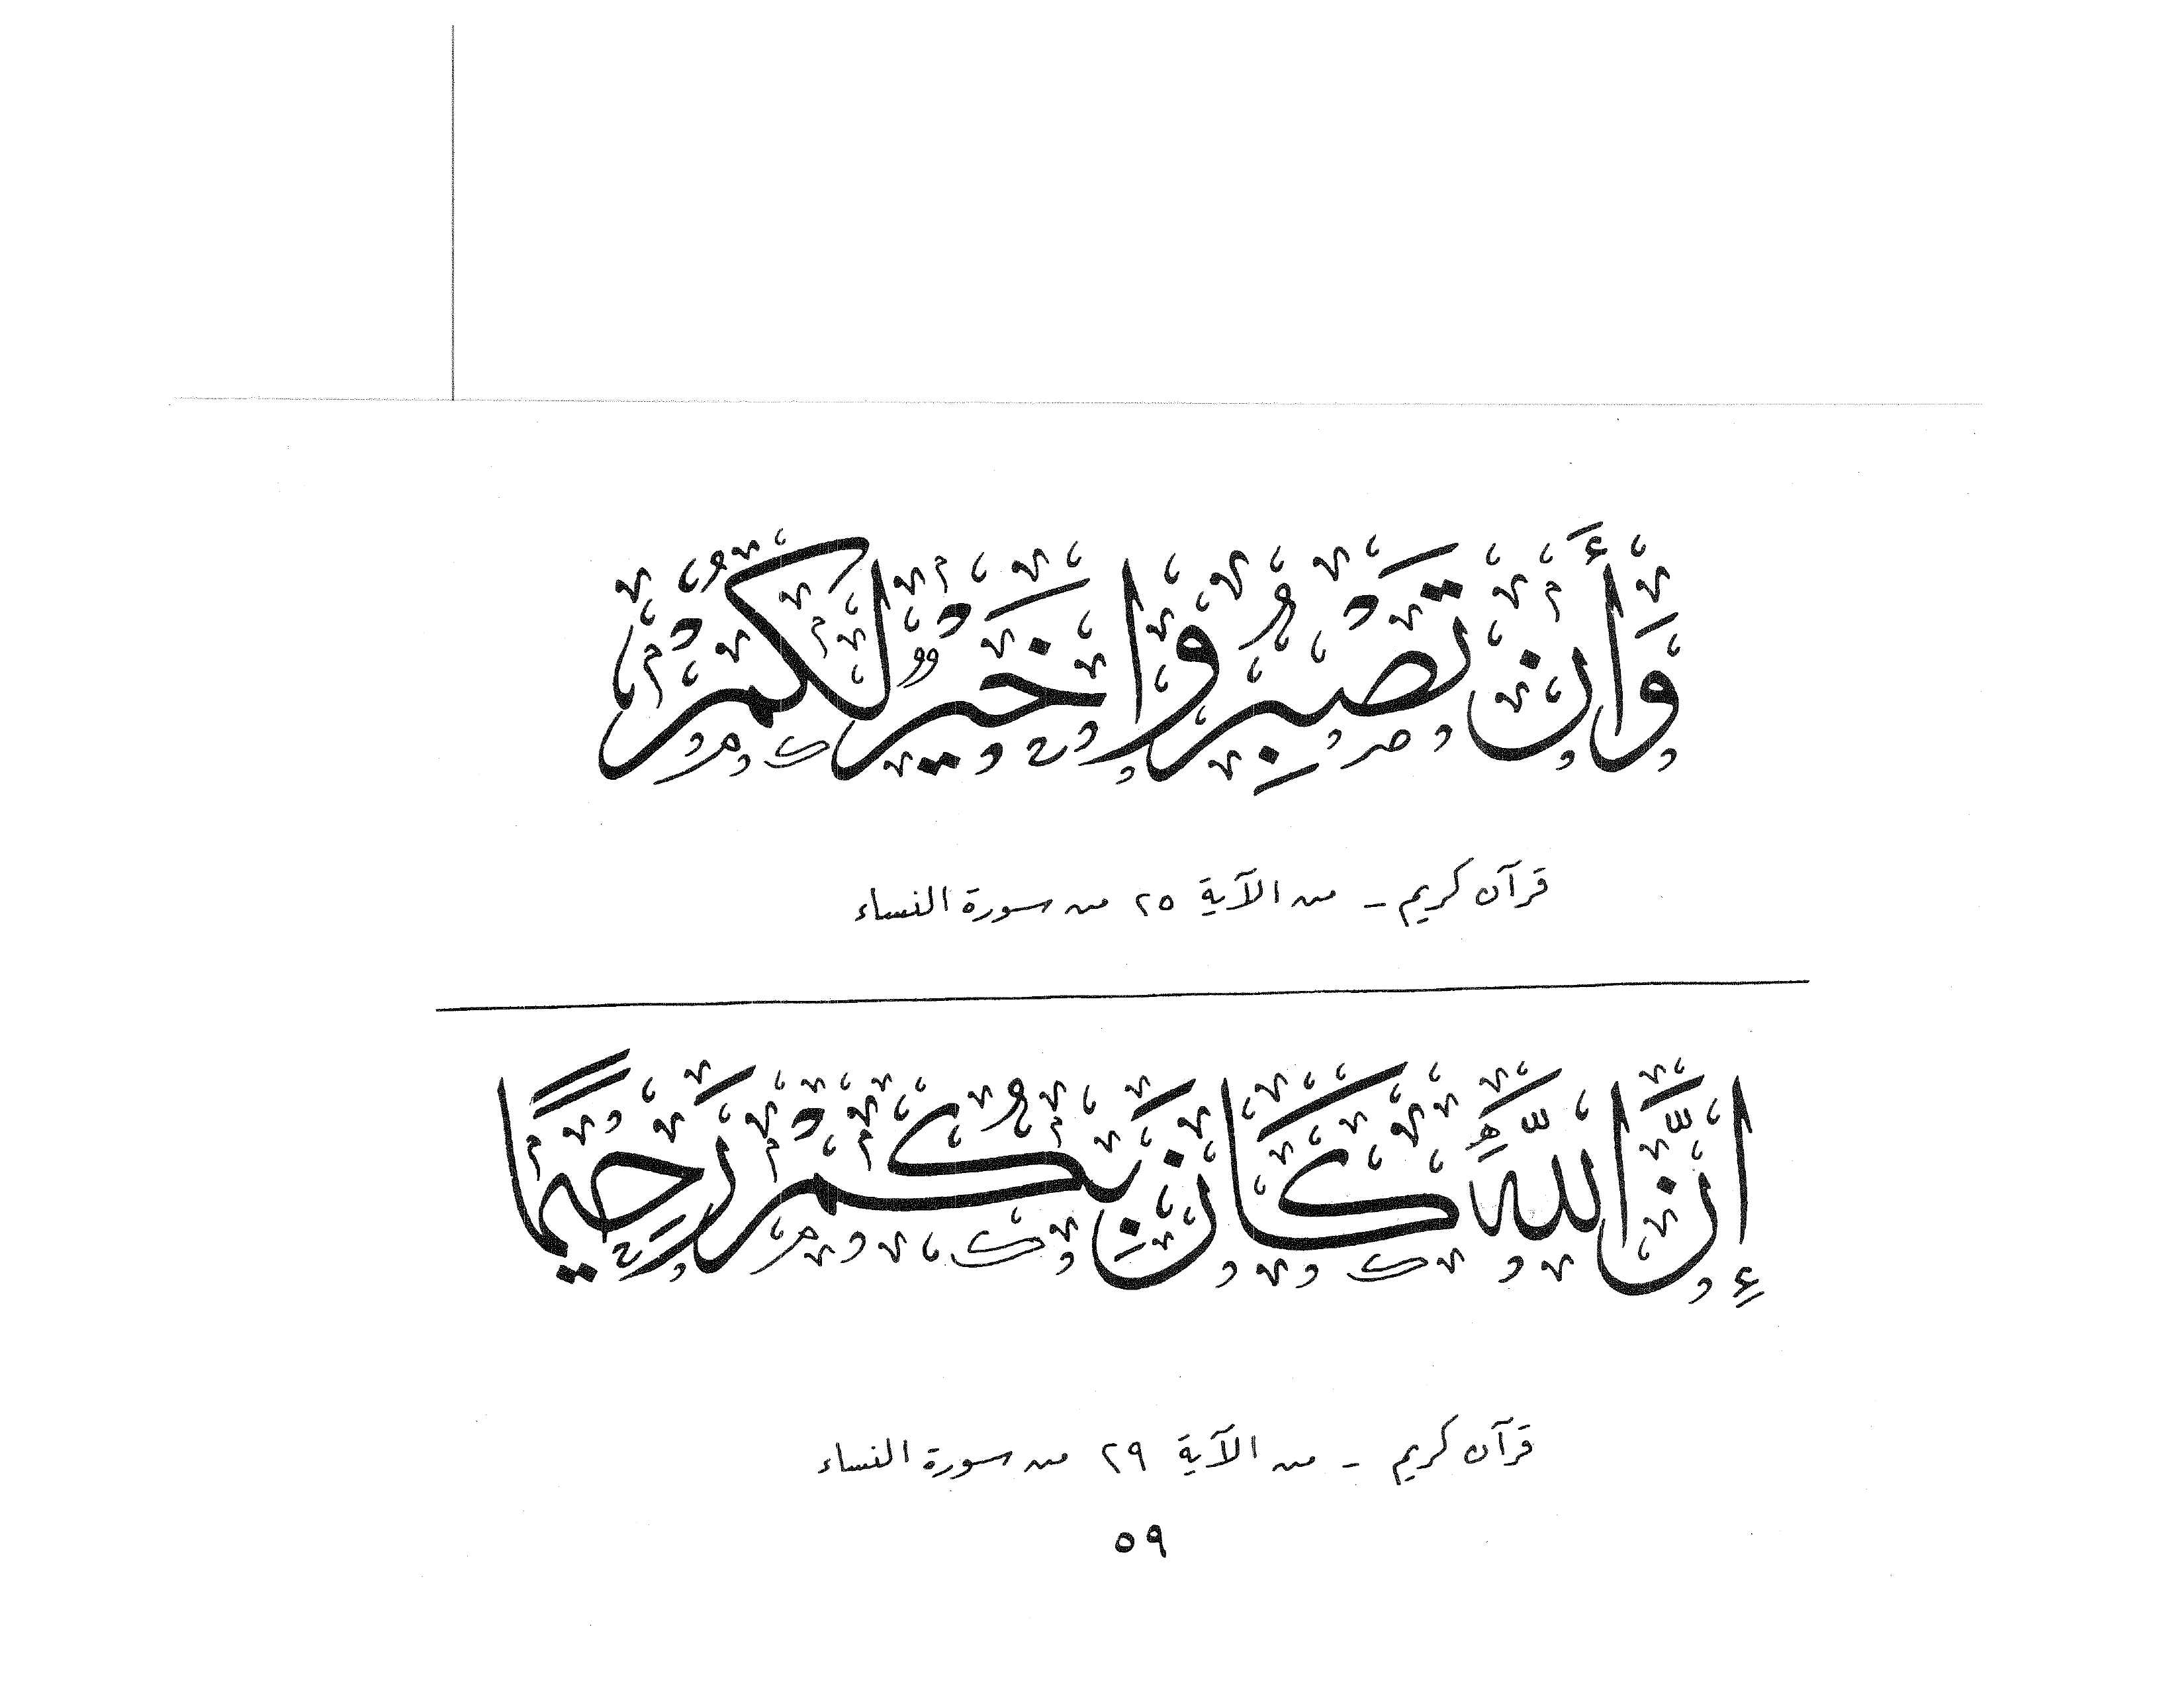 وَأَن تَصْبِرُوا خَيْرٌ لَكُمْ
قرآن كريم - من الآية ٢٥ من سورة النساء
إِنَّ اللَّهَ كَانَ بِكُمْ رَحِيمًا
قرآن كريم - من الآية ٢٩ من سورة النساء
٥٩